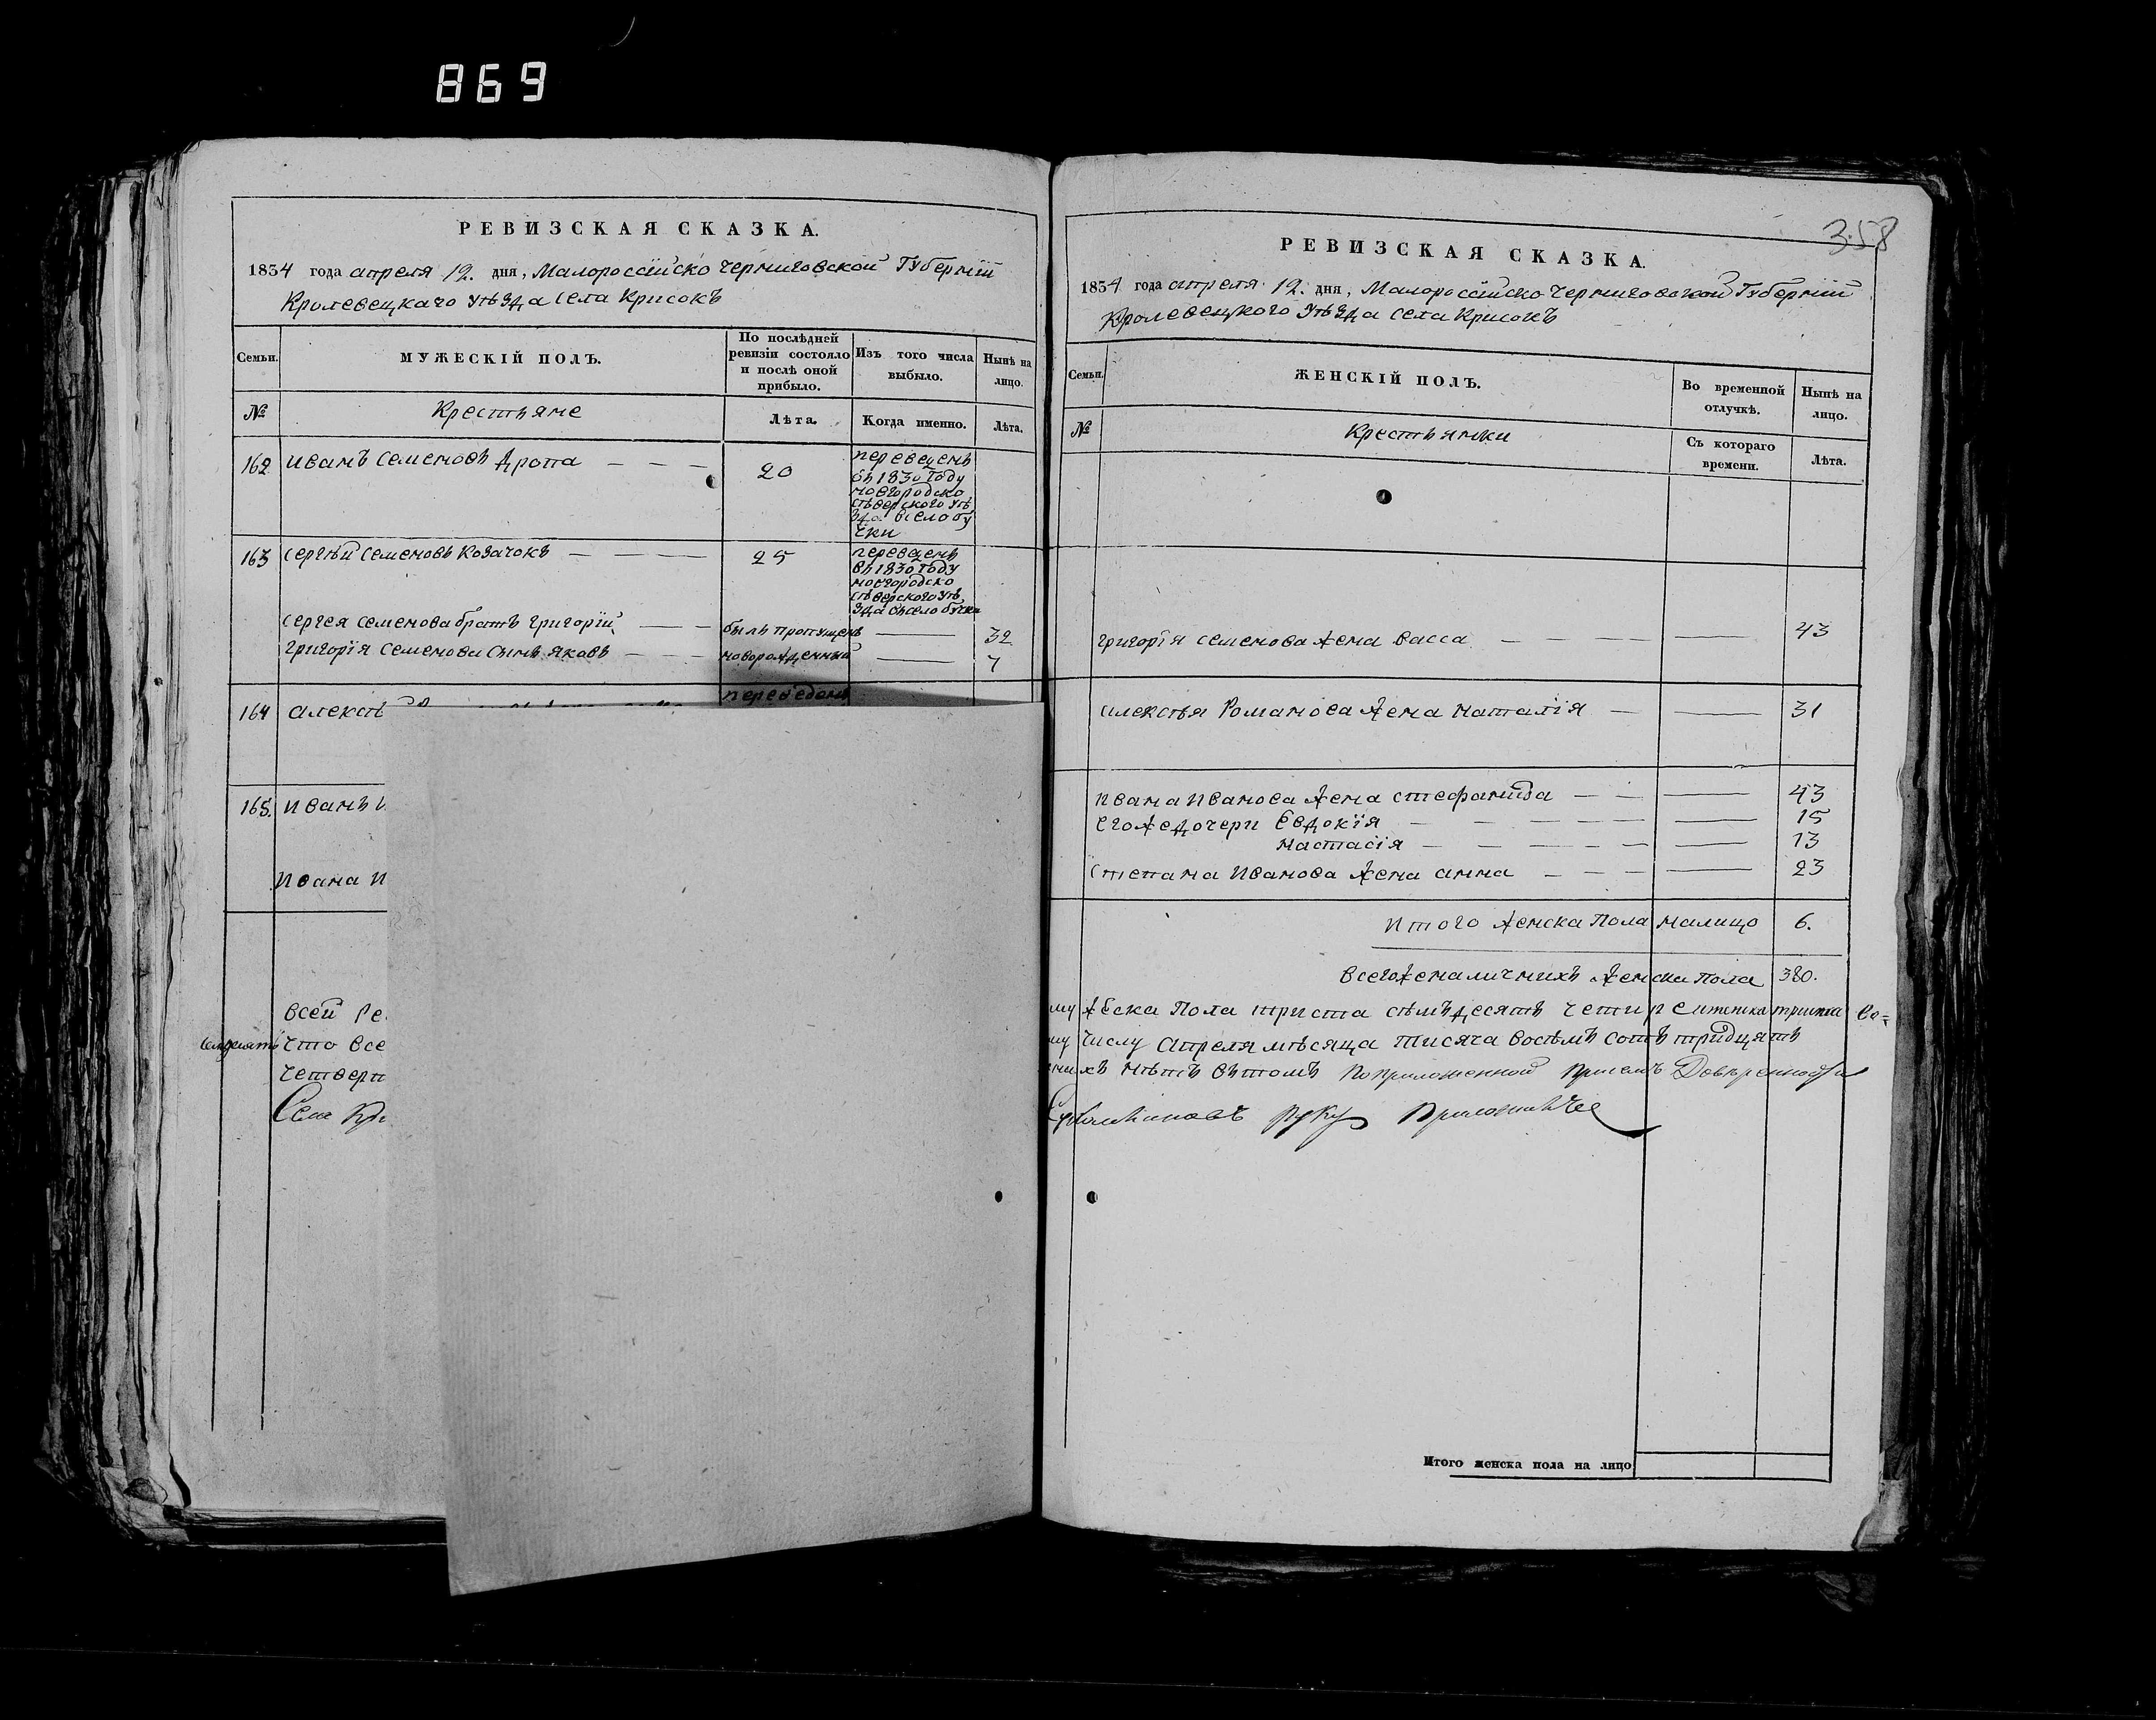 869
РЕВИЗСКАЯ СКАЗКА.
1834 года апреля 12. дня, Малороссійско Черниговской Губерніи
Кролевецкаго уѣзда села Крисокъ
Семьи.
МУЖЕСКІЙ ПОЛЪ.
По послѣдней ревизіи состояло и послѣ оной прибыло.
Изъ того числа выбыло.
Нынѣ на лицо.
№
Крестьяне
Лѣта.
Когда именно.
Лѣта.
162 Иванъ Семеновъ Дропа — — — 20
переведенъ
въ 1830 году
новгородско
сѣверского уѣ
зда в село бу
чки
163 Сергѣй Семеновъ Козачокъ — — — 25
переведенъ
въ 1830 году
новгородско
сѣверского уѣ
зда въ село бучки
Сергея Семенова братъ Григорій — — былъ пропущенъ — 32
Григорія Семенова сынъ Яковъ — — новорожденный — 7
переведенъ
164 Алексѣ
165. Иванъ И
Ивана И
Всей Ре
что все
четверт
Села Кри
358
РЕВИЗСКАЯ СКАЗКА.
1834 года апреля 12. дня, Малороссійско Черниговской Губерніи
Кролевецкого уѣзда села Крисокъ
Семьи.
ЖЕНСКІЙ ПОЛЪ.
Во временной отлучкѣ.
Нынѣ на лицо.
№
Крестьянки
Съ котораго времени.
Лѣта.
Григорія Семенова жена Васса — — — — 43
Алексѣя Романова жена Наталія — — 31
Ивана Иванова жена Стефанида — — — 43
Его же дочери Євдокїя — — — — 15
Настасія — — — — 13
Степана Иванова жена Анна — — — 23
Итого женска пола налицо 6.
Всего женаличнихъ женска пола 380.
му женска пола триста сѣмъдесятъ четири
му числу Апреля мѣсяца тисяча восѣмъ сотъ тридцять
нихъ нѣтъ вътомъ По приложенной при семъ Доверенности
руку приложилъ
Итого женска пола на лицо